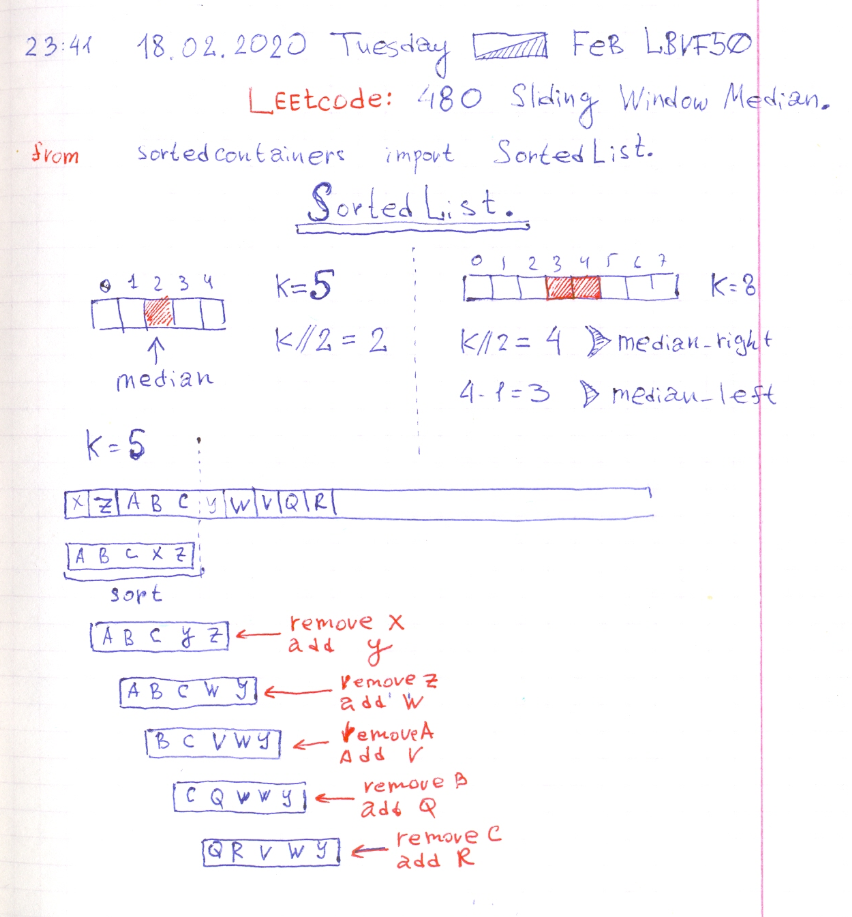 23:41 18.02.2020 Tuesday FeB LBVF50
LEEtcode: 480 Sliding Window Median.
from sortedcontainers import SortedList.
SortedList.
0 1 2 3 4
K=5
K//2 = 2
median
0 1 2 3 4 5 6 7
K=8
K//2 = 4 median_right
4-1=3 median_left
K=5
X Z A B C Y W V Q R
A B C X Z
sort
A B C Y Z
remove X
add y
A B C W Y
remove Z
add W
B C V W Y
remove A
Add V
C Q V W Y
remove B
add Q
Q R V W Y
remove C
add R